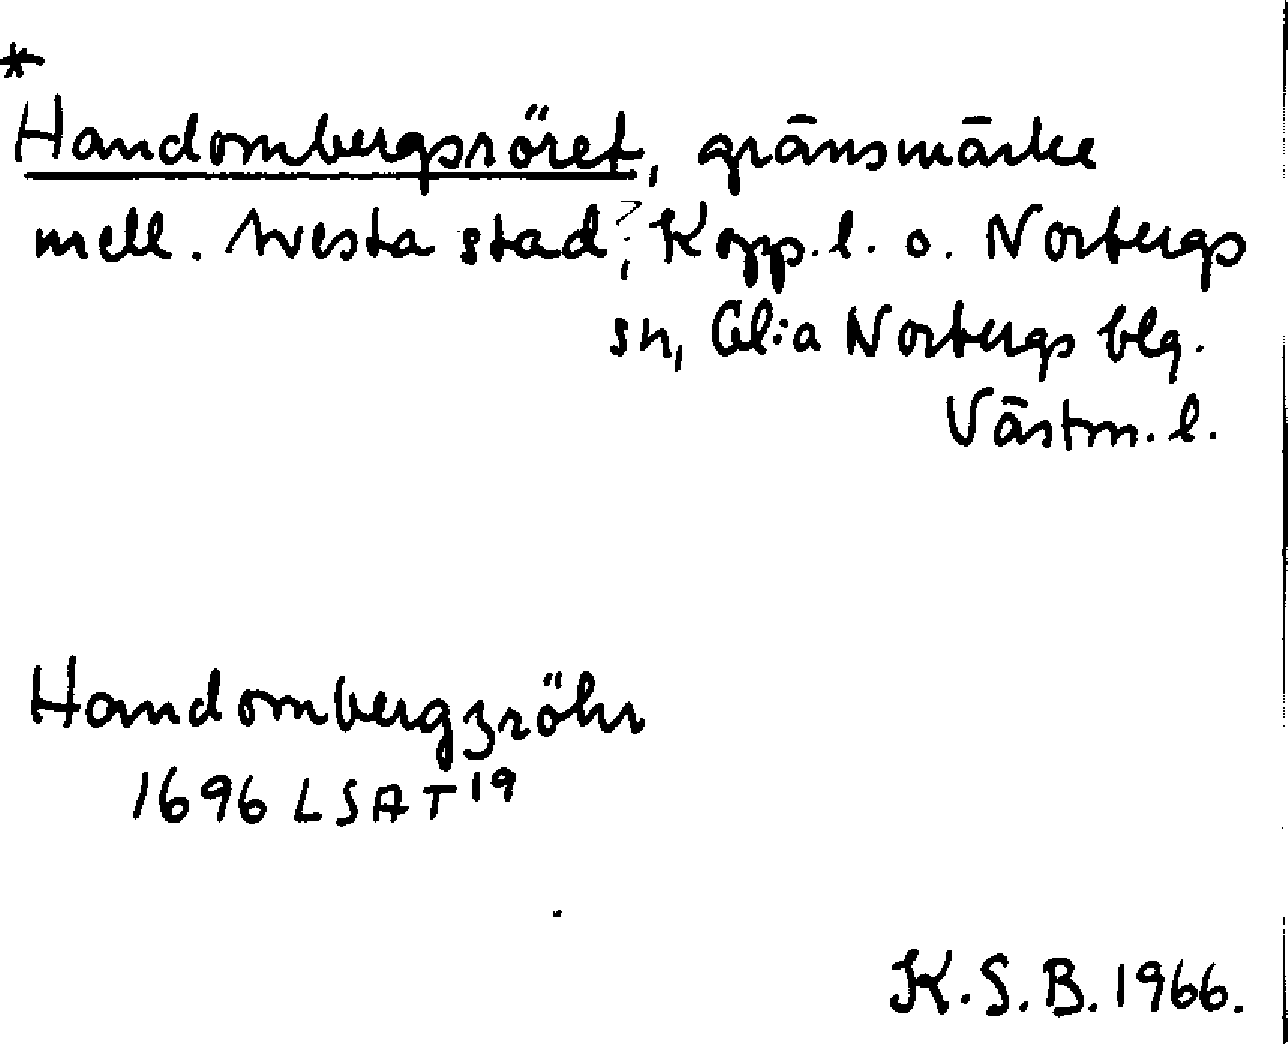 *
Handombergsröret, gränsmärke
mell. Avesta stad?, Kopp. l. o. Norbergs
sn, Gl:a Norbergs blg.
Västm. l.
Handombergzröhr
1696 LSA T19
K.S.B. 1966.